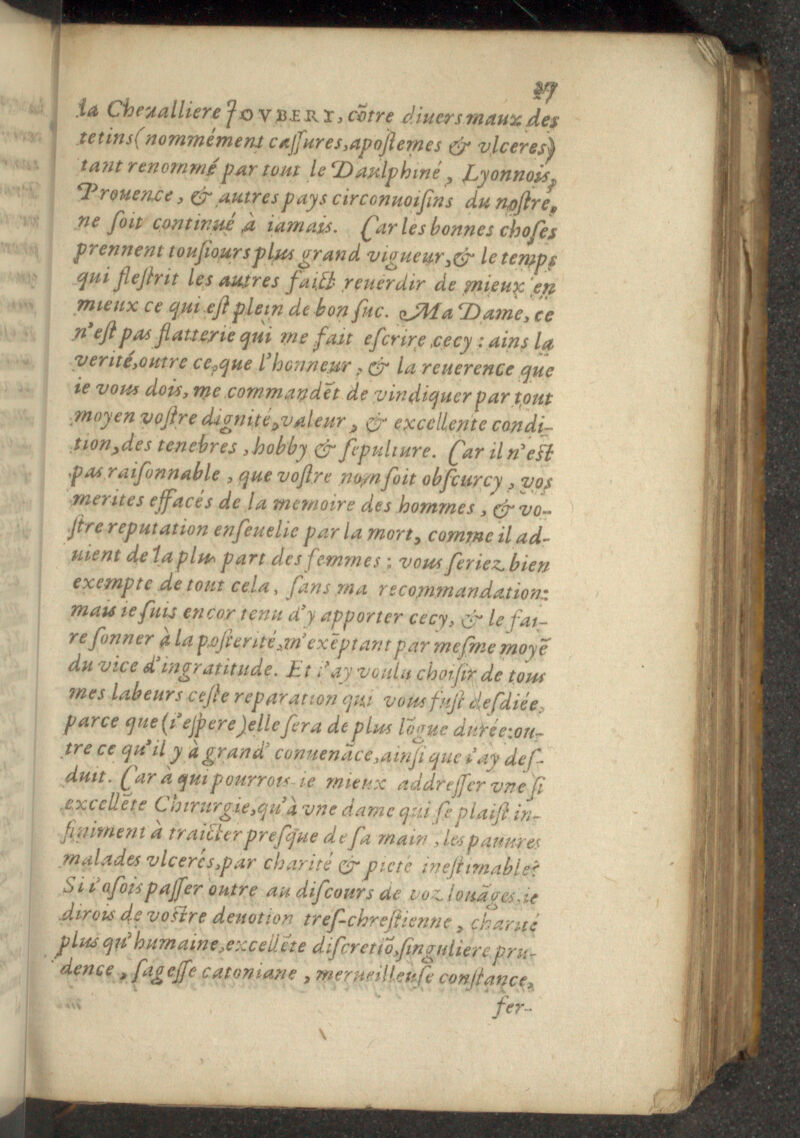 27
la Cheualliere IOVBERT, cõtre diuers maux des
tetins (nommément cassures, apostemes & vlceres)
tant renommé par tout le Daulphiné, Lyonnois,
Prouence, & autres pays circonuoisins du nostre,
ne soit continué à iamais. Car les bonnes choses
prennent tousiours plus grand vigueur, & le temps
qui flestrit les autres faict reuerdir de mieux en
mieux ce qui est plein de bon suc. Ma Dame, ce
n'est pas flatterie qui me fait escrire cecy : ains la
verité, outre ce, que l'honneur, & la reuerence que
ie vous dois, me commandẽt de vindiquer par tout
moyen vostre dignité, valeur, & excellente condi-
tion, des tenebres, hobby & sepulture. Car il n'est
pas raisonnable, que vostre nom soit obscurcy, vos
merites effacés de la memoire des hommes, & vo-
stre reputation enseuelie par la mort, comme il ad-
uient de la plus part des femmes : vous seriez bien
exempte de tout cela, sans ma recommandation:
mais ie suis encor tenu d'y apporter cecy, & le fai-
re sonner à la posterité, m'exẽptant par mesme moyẽ
du vice d'ingratitude. Et i'ay voulu choisir de tous
mes labeurs ceste reparation qui vous fust desdiée,
parce que (i'espere) elle sera de plus lõgue durée: ou-
tre ce qu'il y à grand' conuenãce, ainsi que i'ay des-
duit. Car à qui pourrois-ie mieux addresser vne si
excellẽte Chirurgie, qu'à vne dame qui se plaist in-
finiment à traicter presque de sa main, les pauures
malades vlcerés, par charité & pieté inestimable?
Si i'osois passer outre au discours de voz louãges, ie
dirois de vostre deuotion tres-chrestienne, charité
plus qu'humaine, excellẽte discretiõ, singuliere pru-
dence, sagesse catoniane, merueilleuse constance,
fer-